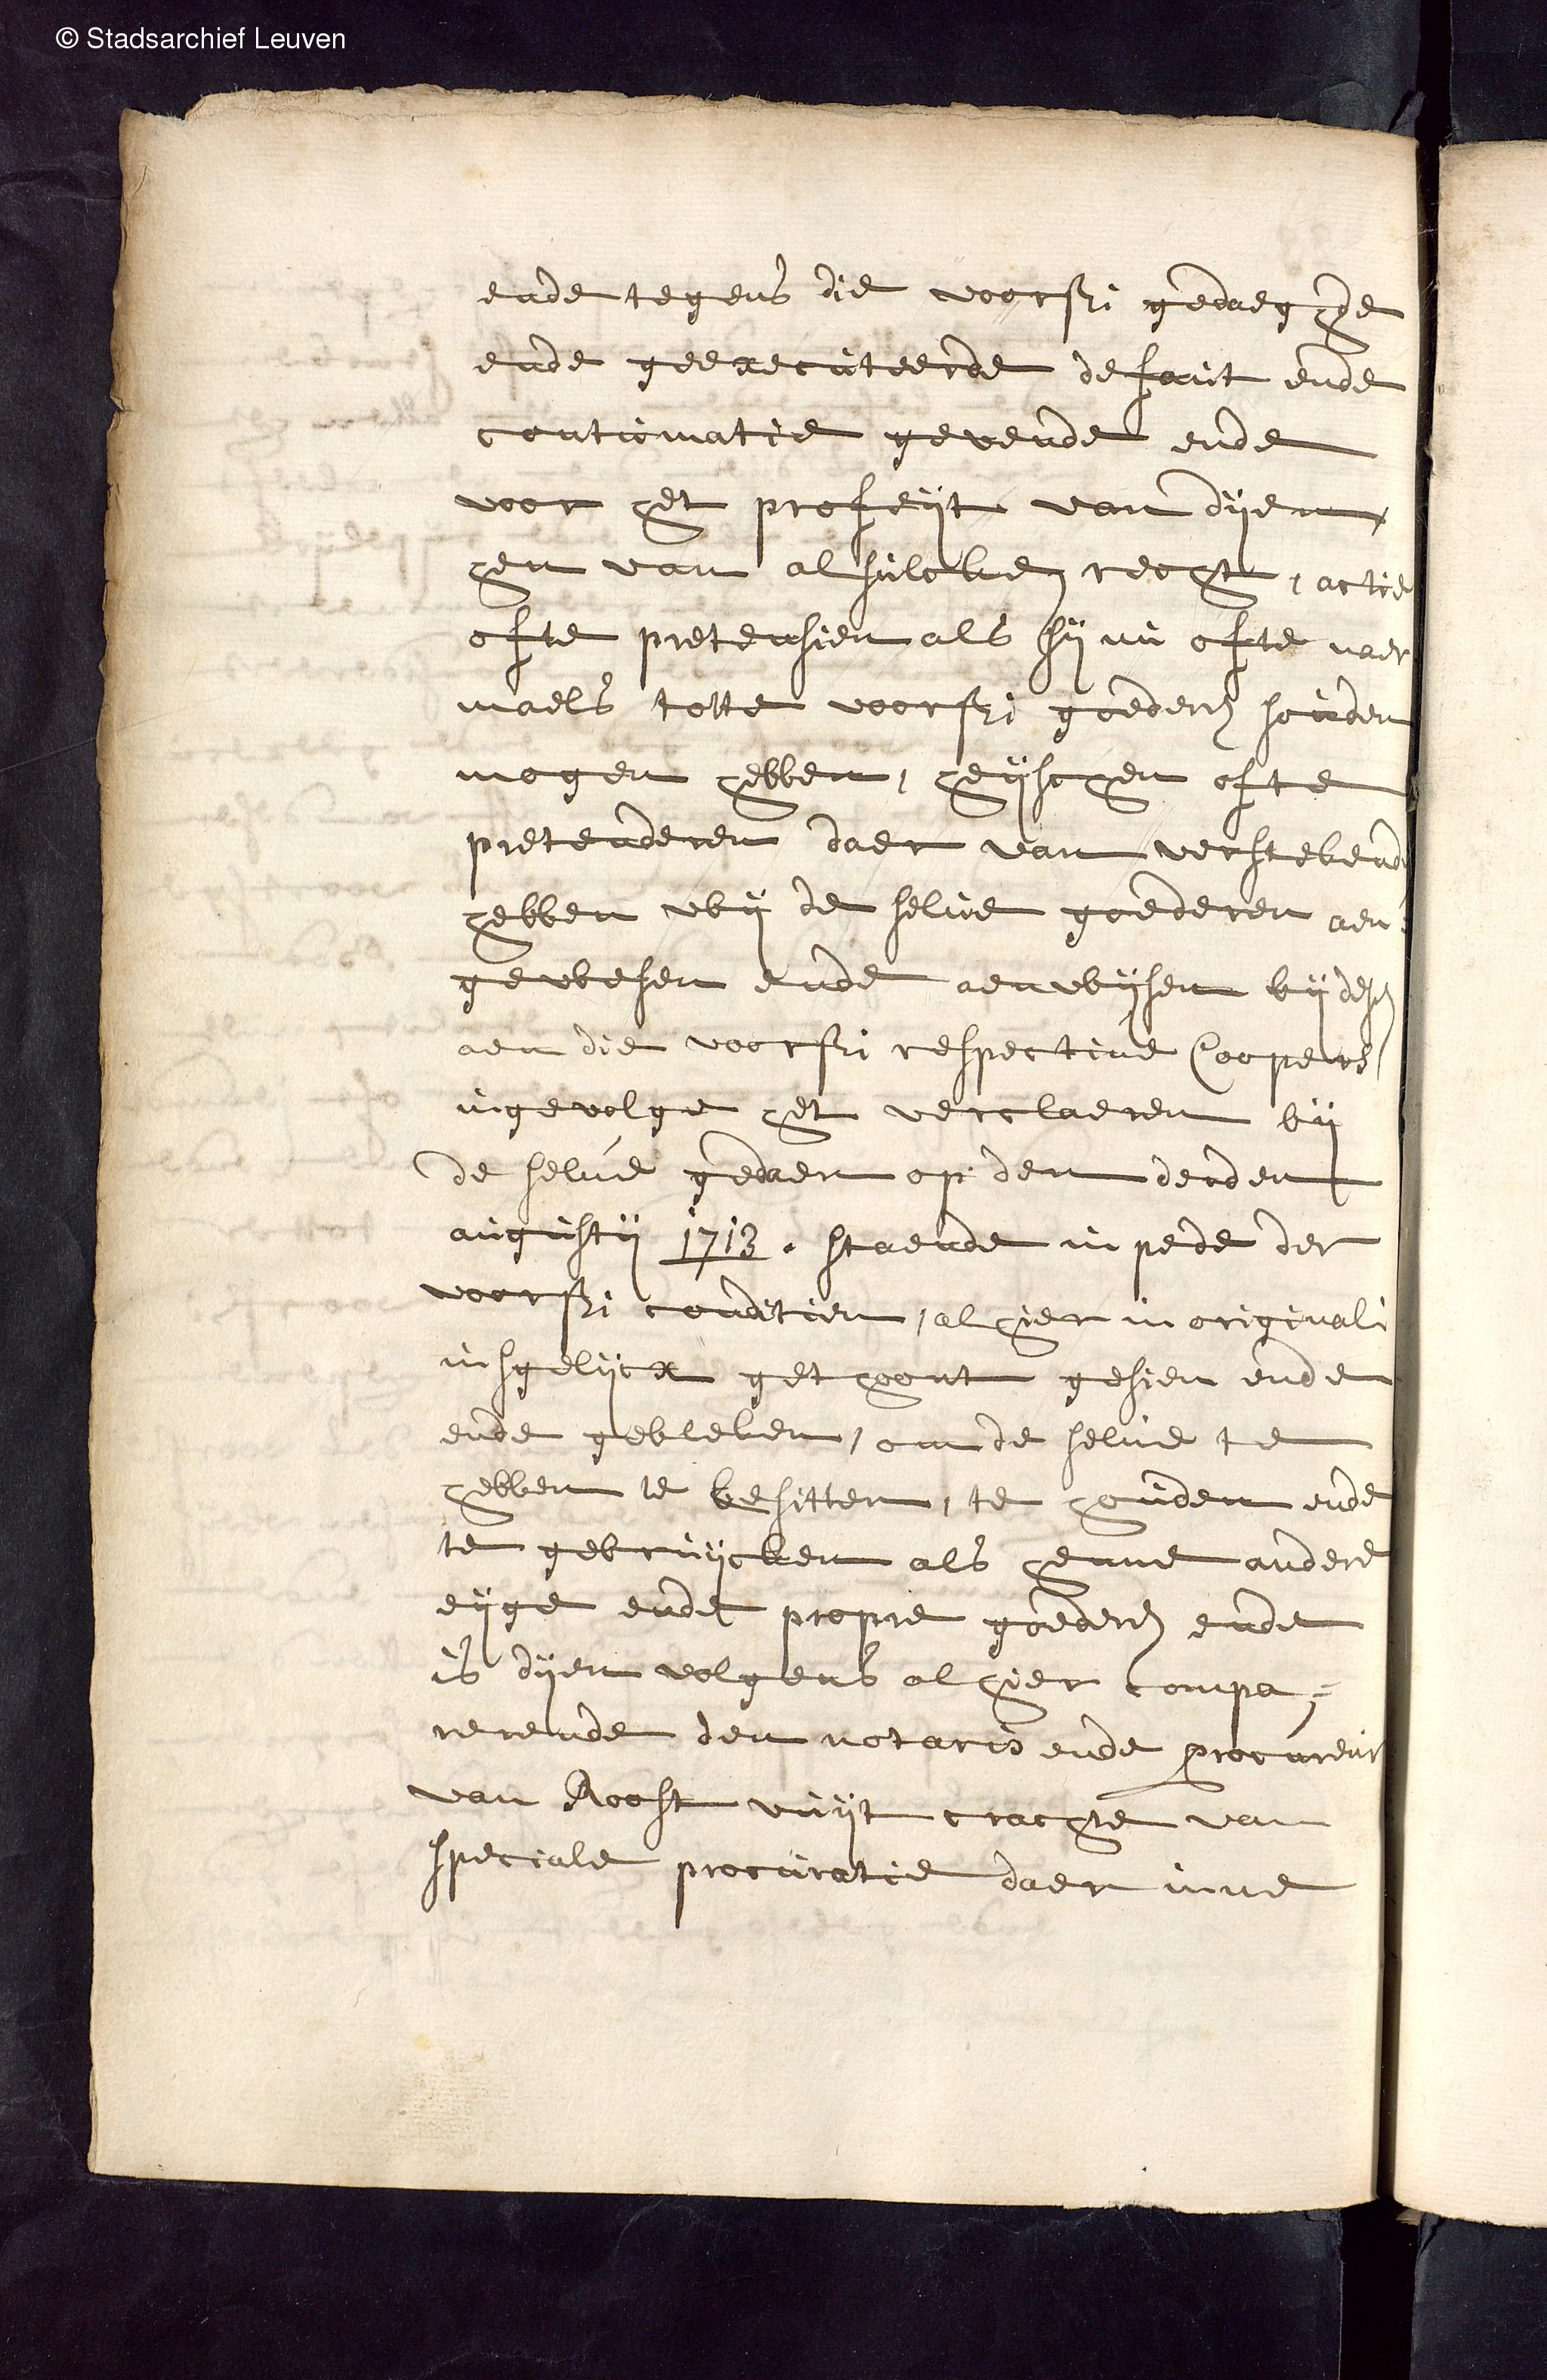 © Stadsarchief Leuven
ende tegens die voors: gedaeghde
ende geexecuteerde defaut ende
contumatie gevende ende
voor het profeyt van dyen,
hen van alsulcken recht, actie
ofte pretensien als sij nu ofte naer
maels totte voors: goederen souden
mogen hebben, heijschen ofte
pretenderen daer van versteken
hebben wij de selve goederen aen:
gewesen ende aenwijsen bij desen
aen die voors: respective Coopers
ingevolge het verclaeren bij
de selve gedaen op den derden
augusty 1713. staende in pede der
voors: conditien, alhier in originali
insgelijcx gethoont gesien ende
ende gebleken, om de selve te
hebben te besitten, te houden ende
te gebruijcken als henne andere
eijge ende propre goederen ende
is dijen volgens alhier compa=
rerende den notaris ende procureur
van Roost vuijt crachte van
speciale procuratie daer inne